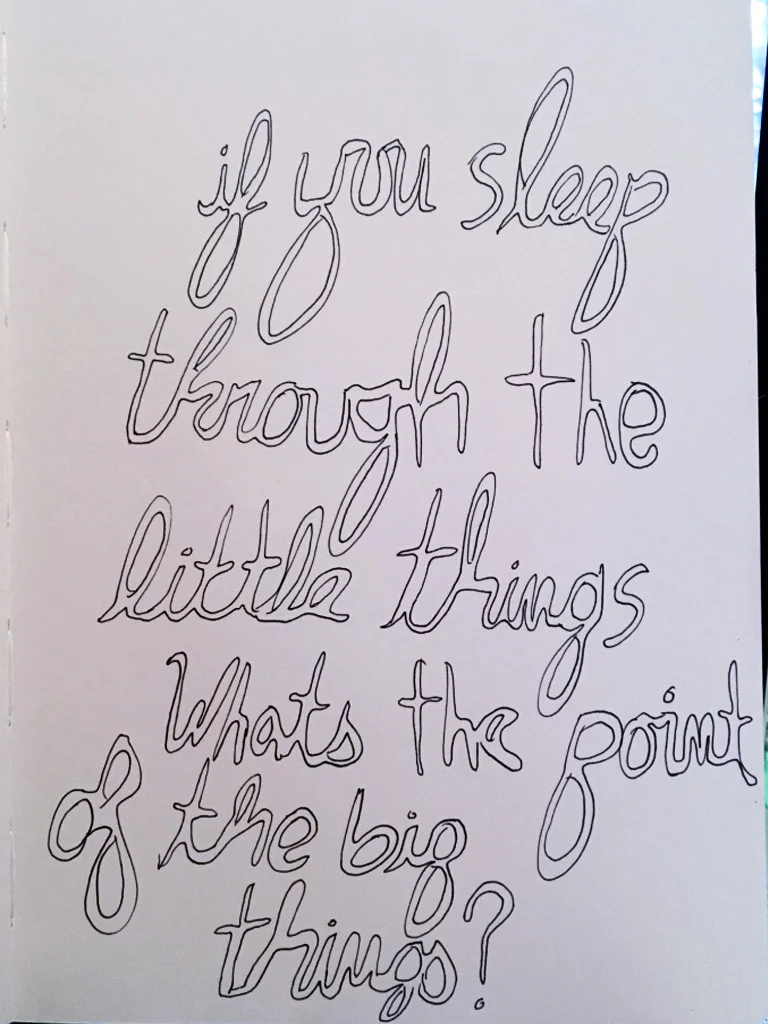 if you sleep
through the
little things
Whats the point
of the big
things?